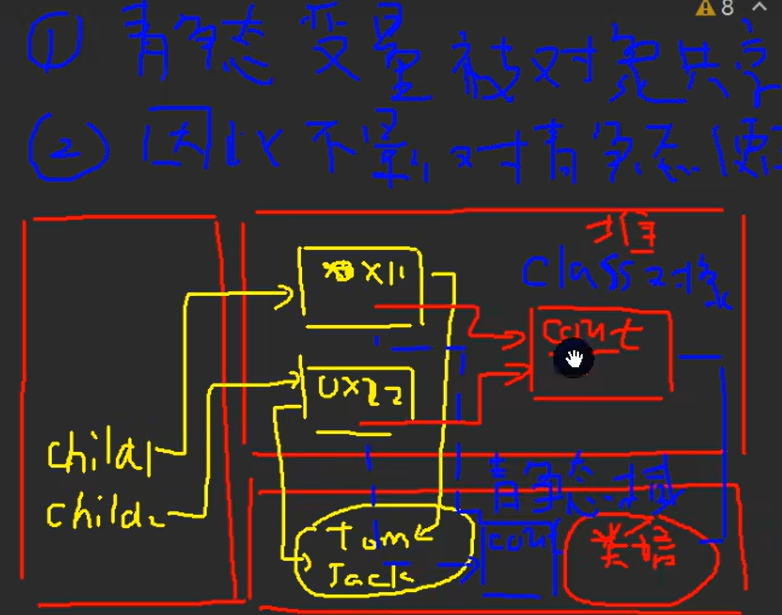 8
① 静态变量被对象共享
② 因此不影响对静态
堆
Class对象
0X11
count
0X22
child1
child2
静态域
Tom
Jack
coun
类信